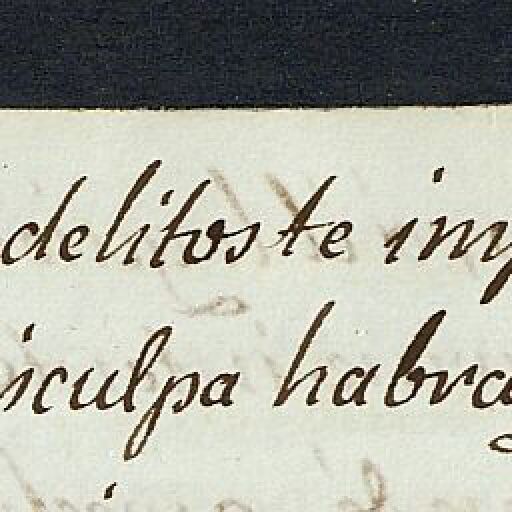 delitos te imp
isculpa habra